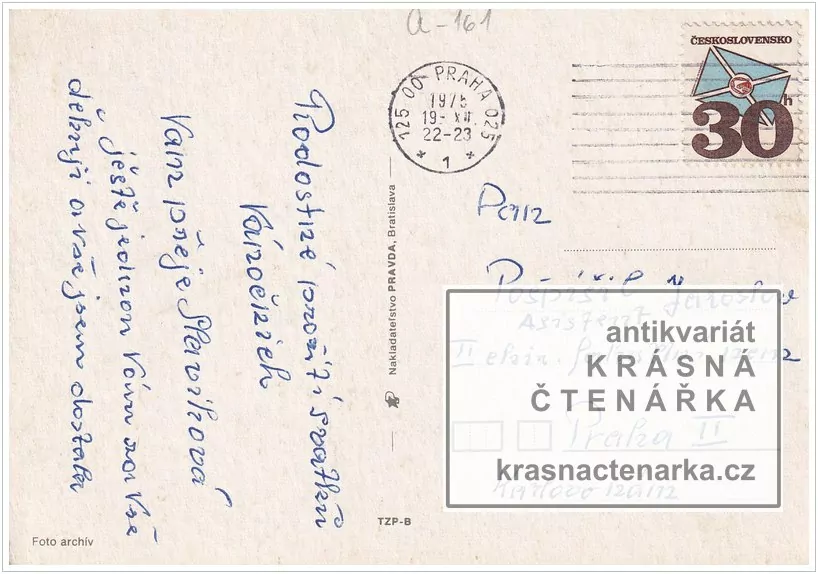 a-161
ČESKOSLOVENSKO
30h
125 00 PRAHA 025
1975
19.-XII.
22-23
* 1 *
Radostné prožití svátků
Vánočních
Vám přeje Slavíková
ještě jednou Vám za vše
děkuji a vše jsem dostala
Nakladateľstvo PRAVDA, Bratislava
Pan
Pospíšil Jaroslav
Asistent
II
Praha II
Karlovo nám
antikvariát
KRÁSNÁ
ČTENÁŘKA
krasnactenarka.cz
TZP-B
Foto archív